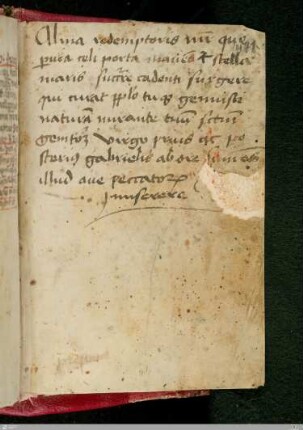 Alma redemptoris mr̄ que
p̄uia celi porta manes & stella
maris succ̄re cadenti surgere
qui curat pp̄lo tu q̄ genuisti
natura mirante tuū sctm̄
genitoꝝ virgo prius ac po
sterius gabrielis ab ore
illud aue peccatoꝝ
miserere